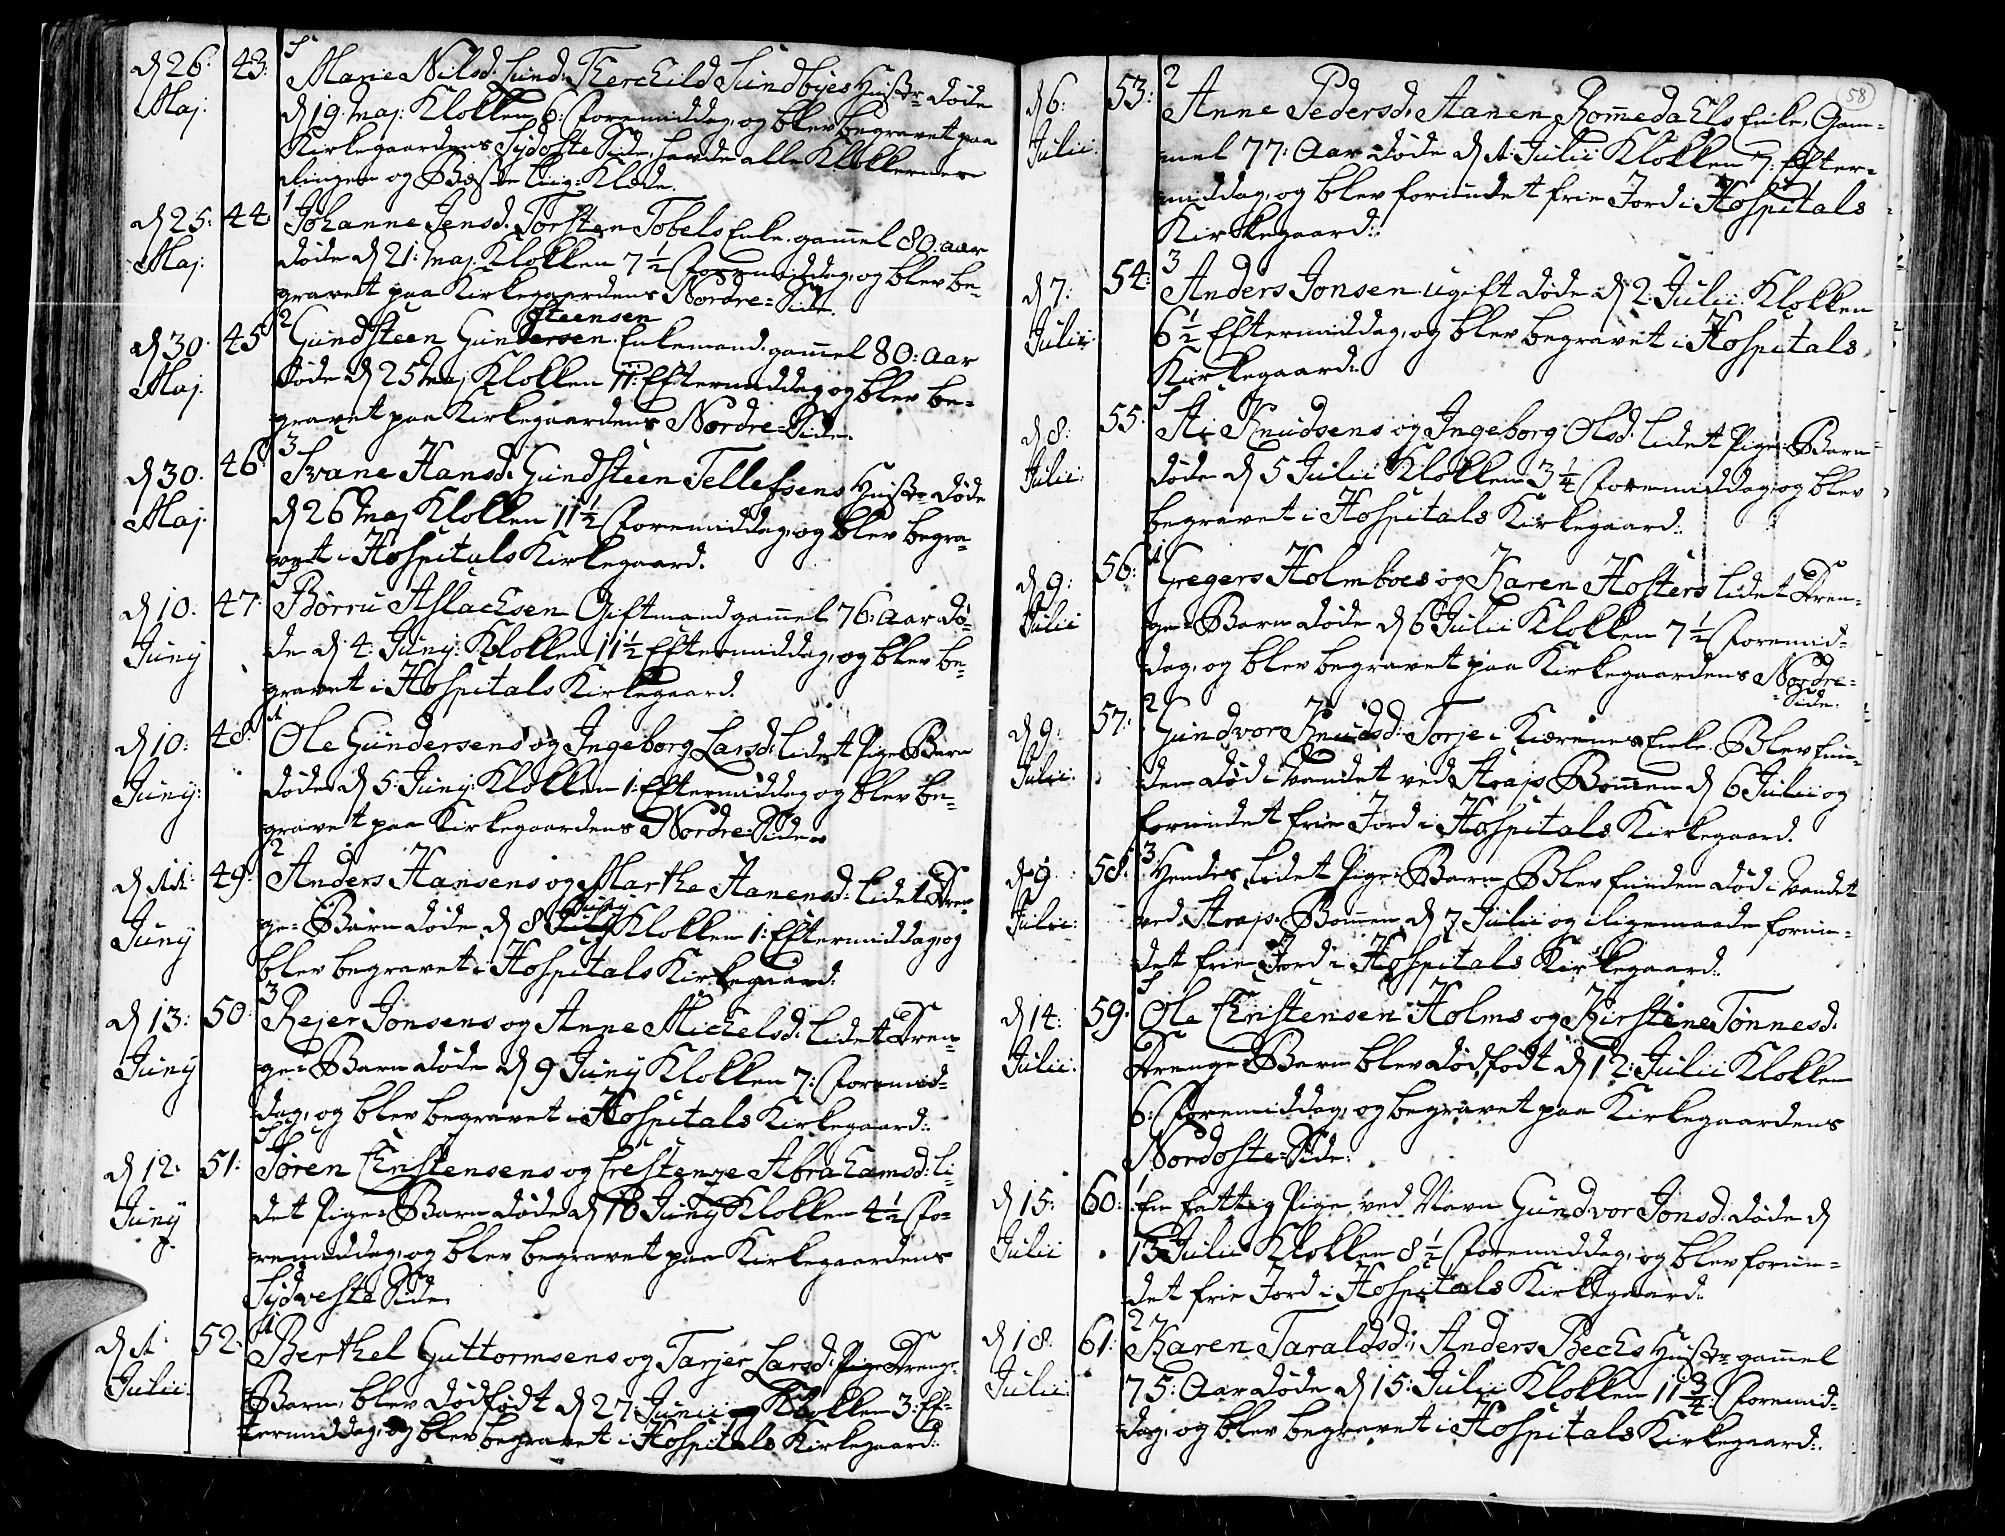 d 26: 43: 5
Marie Nilsd: Lund: Therchild Lundbyes Hustr: døde
Maj: d 19 Maj: Klokken 6: formiddag, og blev begravet paa
Kirkegaardens Sydoste Side, havde alle Klokkernes
ringen og Beste Liig-Klæde.
d 25: 44 1 Johanne Jensd: Torsten Tobels Enke. gamel 80: aar
Maj: døde d 21: Maj: Klokken 7½ formiddag, og blev be-
gravet paa Kirkegaardens Nordre-Side.
steensen
d 30. 45 2 Gundsteen Gundersen. Enkemand. gamel 80: Aar
Maj. døde d 25 Maj Klokken 11: Eftermiddag og blev be-
gravet paa Kirkegaardens Nordre-Side.
d 30. 46. 3
Svane Hansd: Gundsteen Tellefsens Hustr: døde
Maj: d 26 Maj Klokken 11½ formiddag, og blev begra-
vet i Hospitals Kirkegaard.
d 10: 47: Børru Aslachsen Giftmand gamel 76: Aar dø-
Juny de d 4: Juny: Klokken 11½ Eftermiddag, og blev be-
gravet i Hospitals Kirkegaard.
d 10: 48: 1
Ole Gundersens og Ingeborg Larsd: lidet Pige Barn
Juny: døde d 5: Juny: Klokken 1: Eftermiddag og blev be-
gravet paa Kirkegaardens Nordre-Side
d 11: 49: 2
Anders Hansens og Marthe Aanensd: lidet Dren-
Juny
Juny ge-Barn døde d 8 July Klokken 1: Eftermiddag, og
blev begravet i Hospitals Kirkegaard:
d 13: 50: 3
Rejer Jonsens og Anne Michelsd: lidet Dren-
Juny ge-Barn døde d 9 Juny Klokken 7: formid-
dag, og blev begravet i Hospitals Kirkegaard:
d 12: 51: Søren Christensens og Crestenze Abrahamsd: li-
Juny det Pige-Barn døde d 10 Juny Klokken 4½ fo-
remiddag, og blev begravet paa Kirkegaardens
Sydveste Side.
d 1: 52: 1 Berthel Guttormsens og Tarjer Larsd: Pige Drenge-
Julii: Barn, blev dødfødt d 27: Junii Klokken 3: Ef-
termiddag, og blev begravet i Hospitals Kirkegaard:
58
d 6: 53: 2 Anne Pedersd: Aanen Romedahls Enke, Gam-
Julii: mel 77: Aar døde d 1: Julii Klokken 7: Efter-
middag, og blev forundet frie Jord i Hospitals
Kirkegaard:
d 7: 54: 3
Anders Jonsen ugift døde d 2: Julii: Klokken
Julii: 6½ Eftermiddag, og blev begravet i Hospitals
Kirkegaard:
d 8: 55: Ai Knudsens og Ingeborg Olsd: lidet Pige-Barn
Julii: døde d 5 Julii Klokken 3¼ formiddag, og blev
begravet i Hospitals Kirkegaard:
d 9: 56: 1 Gregers Holmboes og Karen Hosters lidet Dren-
Julii ge-Barn døde d 6 Julii Klokken 7½ formid-
dag, og blev begravet paa Kirkegaardens Nordre-
Side.
d 9: 57: 2
Gundvor Knudsd: Torje i Kiærenes Enke. Blev fun-
Julii: den død i Vandet ved Bommen d 6 Julii og
forundet frie Jord i Hospitals Kirkegaard.
d 9 58: 3
Hendes lidet Pige-Barn Blev funden død i Vandet
Julii: ved Bommen d 7 Julii og iligemaade forun-
det frie Jord i Hospitals Kirkegaard:
d 14: 59: Ole Christensen Holms og Kirstine Tønnesd:
Julii: Drenge-Barn blev dødfødt d 12: Julii Klokken
6: formiddag, og begravet paa Kirkegaardens
Nordoste-Side:
d 15: 60: 1 En fattig Pige, ved Navn Gundvor Jonsd: døde d
Julii 13 Julii Klokken 8½ formiddag, og blev forun-
det frie Jord i Hospitals Kirkegaard:
d 18. 61: 2
Karen Taraldsd: Anders Bechs Hustr: gamel
Julii: 75: Aar døde d 15: Julii Klokken 11¾ formid-
dag, og blev begravet i Hospitals Kirkegaard: